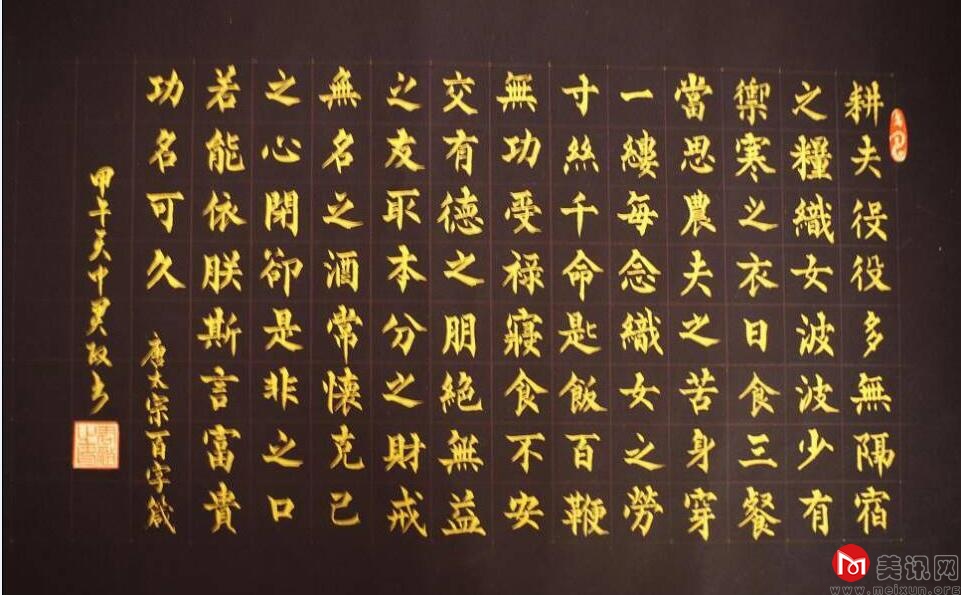 耕夫役役多無隔宿
之糧織女波波少有
禦寒之衣日食三餐
當思農夫之苦身穿
一縷每念織女之勞
寸絲千命匙飯百鞭
無功受祿寢食不安
交有德之朋絕無益
之友取本分之財戒
無名之酒常懷克己
之心閉卻是非之口
若能依朕斯言富貴
功名可久
唐太宗百字箴
美讯网
www.meixun.org